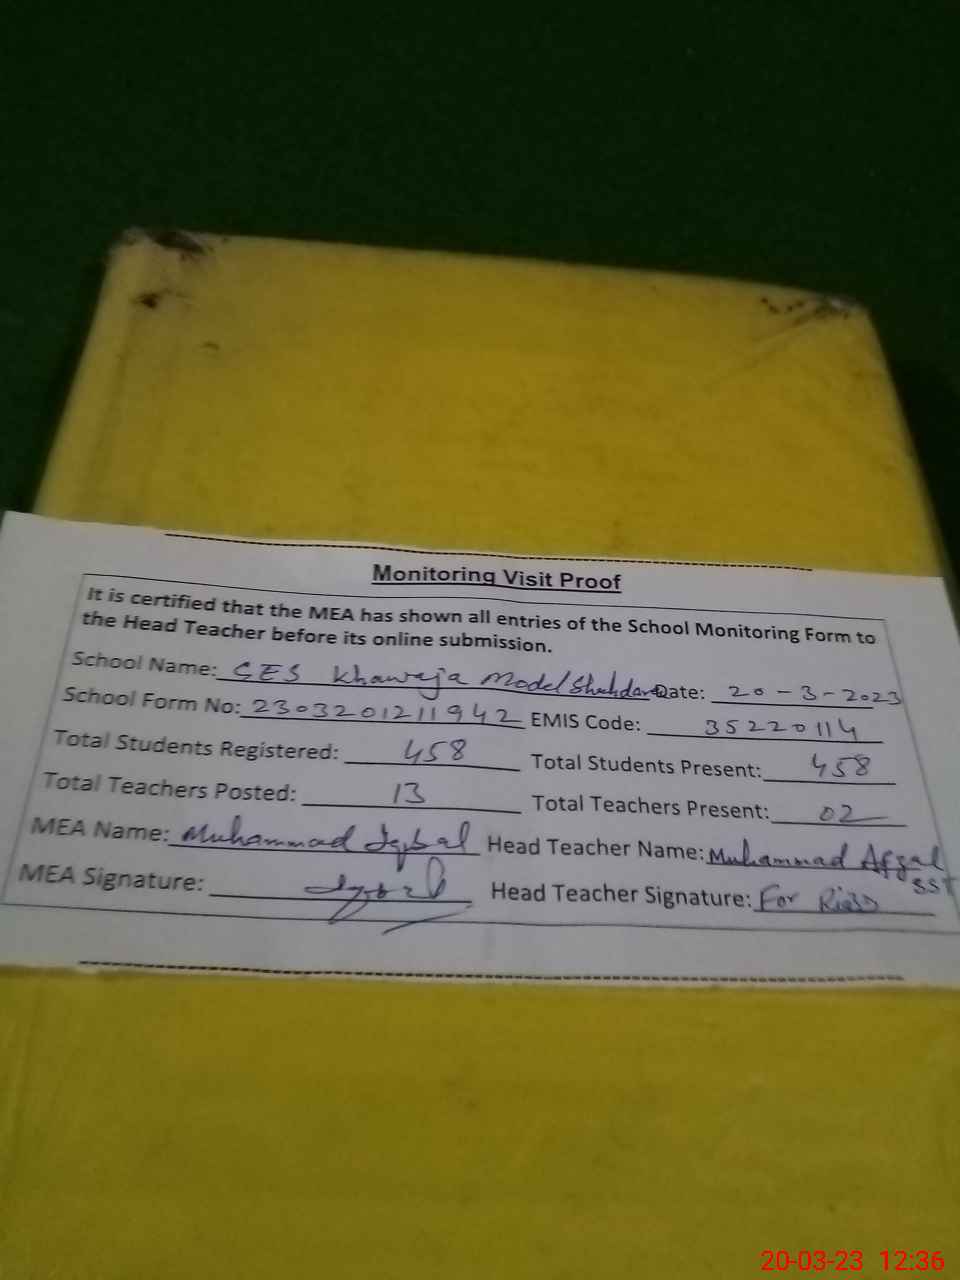 Monitoring Visit Proof
It is certified that the MEA has shown all entries of the School Monitoring Form to
the Head Teacher before its online submission.
School Name: GES Khawaja Model Date: 20-3-2023
School Form No: 2303201211942 EMIS Code: 35220114
Total Students Registered: 458 Total Students Present: 458
Total Teachers Posted: 13 Total Teachers Present: 02
MEA Name: Muhammad Iqbal Head Teacher Name: Muhammad Afzal
SST
MEA Signature: Iqbal Head Teacher Signature: For
20-03-23 12:36